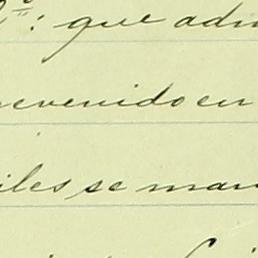 2º: que adm
evenido en
iles se man